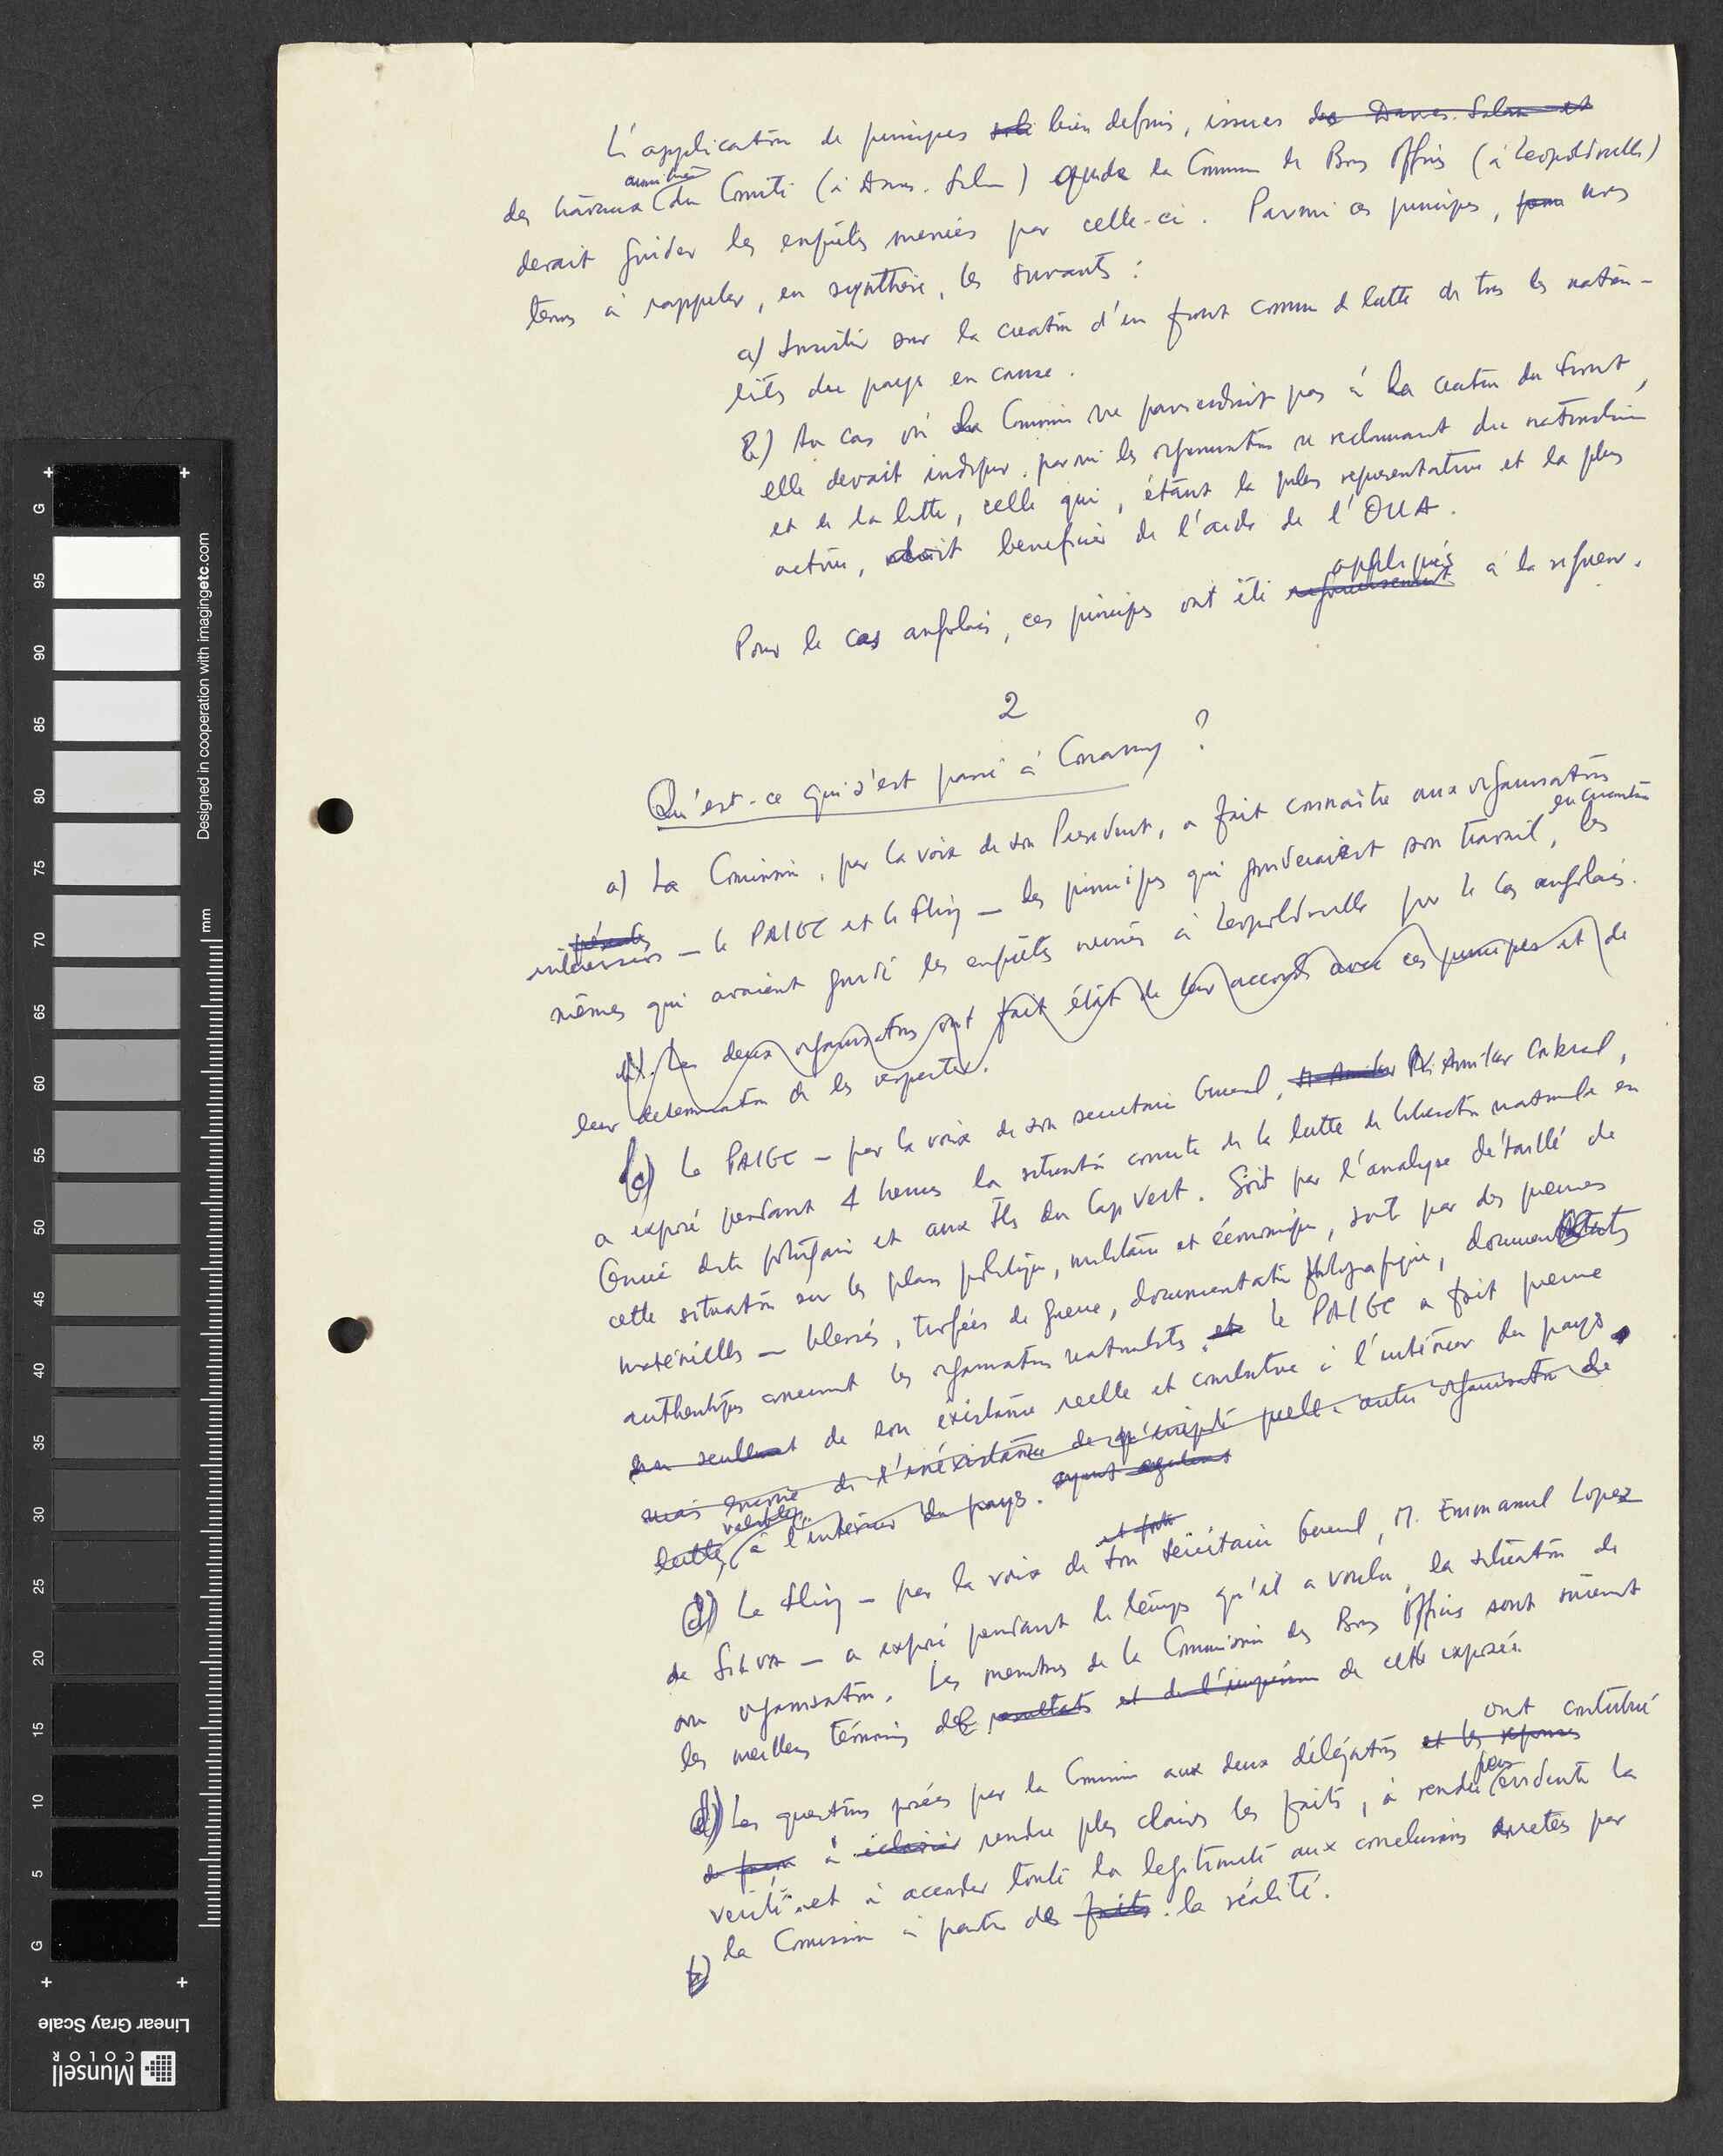 L'application de principes bien definis, issues des Dares-Salam et
des travaux du Comité (à Dares-Salam) que de la Commission de Bons Offices (à Leopoldville)
devait guider les enquêtes menées par celle-ci. Parmi ces principes, nous
tenons à rappeler, en synthèse, les suivants :
a) Insister sur la creation d'un front commun de lutte de tous les nationa-
listes du pays en cause.
b) Au cas où la Commission ne parviendrait pas à la creation du front,
elle devait indiquer, parmi les organisations se reclamant du nationalisme
et de la lutte, celle qui, étant la plus representative et la plus
active, doit beneficier de l'aide de l'OUA.
Pour le cas angolais, ces principes ont été rigoureusement appliqués à la rigueur.
2
Qu'est-ce qui s'est passé à Conakry ?
a) La Commission, par la voix de son President, a fait connaître aux organisations
en question
interessées — le PAIGC et le Fling — les principes qui guideraient son travail, les
mêmes qui avaient guidé les enquêtes menées à Leopoldville pour le cas angolais.
b) Les deux organisations ont fait état de leur accord avec ces principes et de
leur determination de les respecter.
c) Le PAIGC — par la voix de son secretaire General, M. Amilcar Cabral,
a exposé pendant 4 heures la situation concrete de la lutte de liberation nationale en
Guinée dite portugaise et aux Iles du Cap Vert. Soit par l'analyse détaillé de
cette situation sur les plans politique, militaire et économique, soit par des preuves
matérielles — blessés, trofées de guerre, documentation photografique, documents
authentiques concernant les organisations nationalistes, le PAIGC a fait preuve
non seulement de son existance reelle et combative à l'intérieur du pays
mais encore de l'inéxistance de n'importe quelle autre organisation de
lutte, valable, à l'intérieur du pays.
d) Le Fling — par la voix de son secrétaire General, M. Emmanuel Lopez
da Silva — a exposé pendant le temps qu'il a voulu, la situation de
son organisation. Les membres de la Commission des Bons Offices sont surement
les meilleurs témoins des resultats et de de cette exposée.
d) Les questions posées par la Commission aux deux délégations et les reponses ont contribué
à éclaircir rendre plus clairs les faits, à rendre plus évidente la
verité et à accorder toute la legitimité aux conclusions arretés par
la Commission à partir de faits. la réalité.